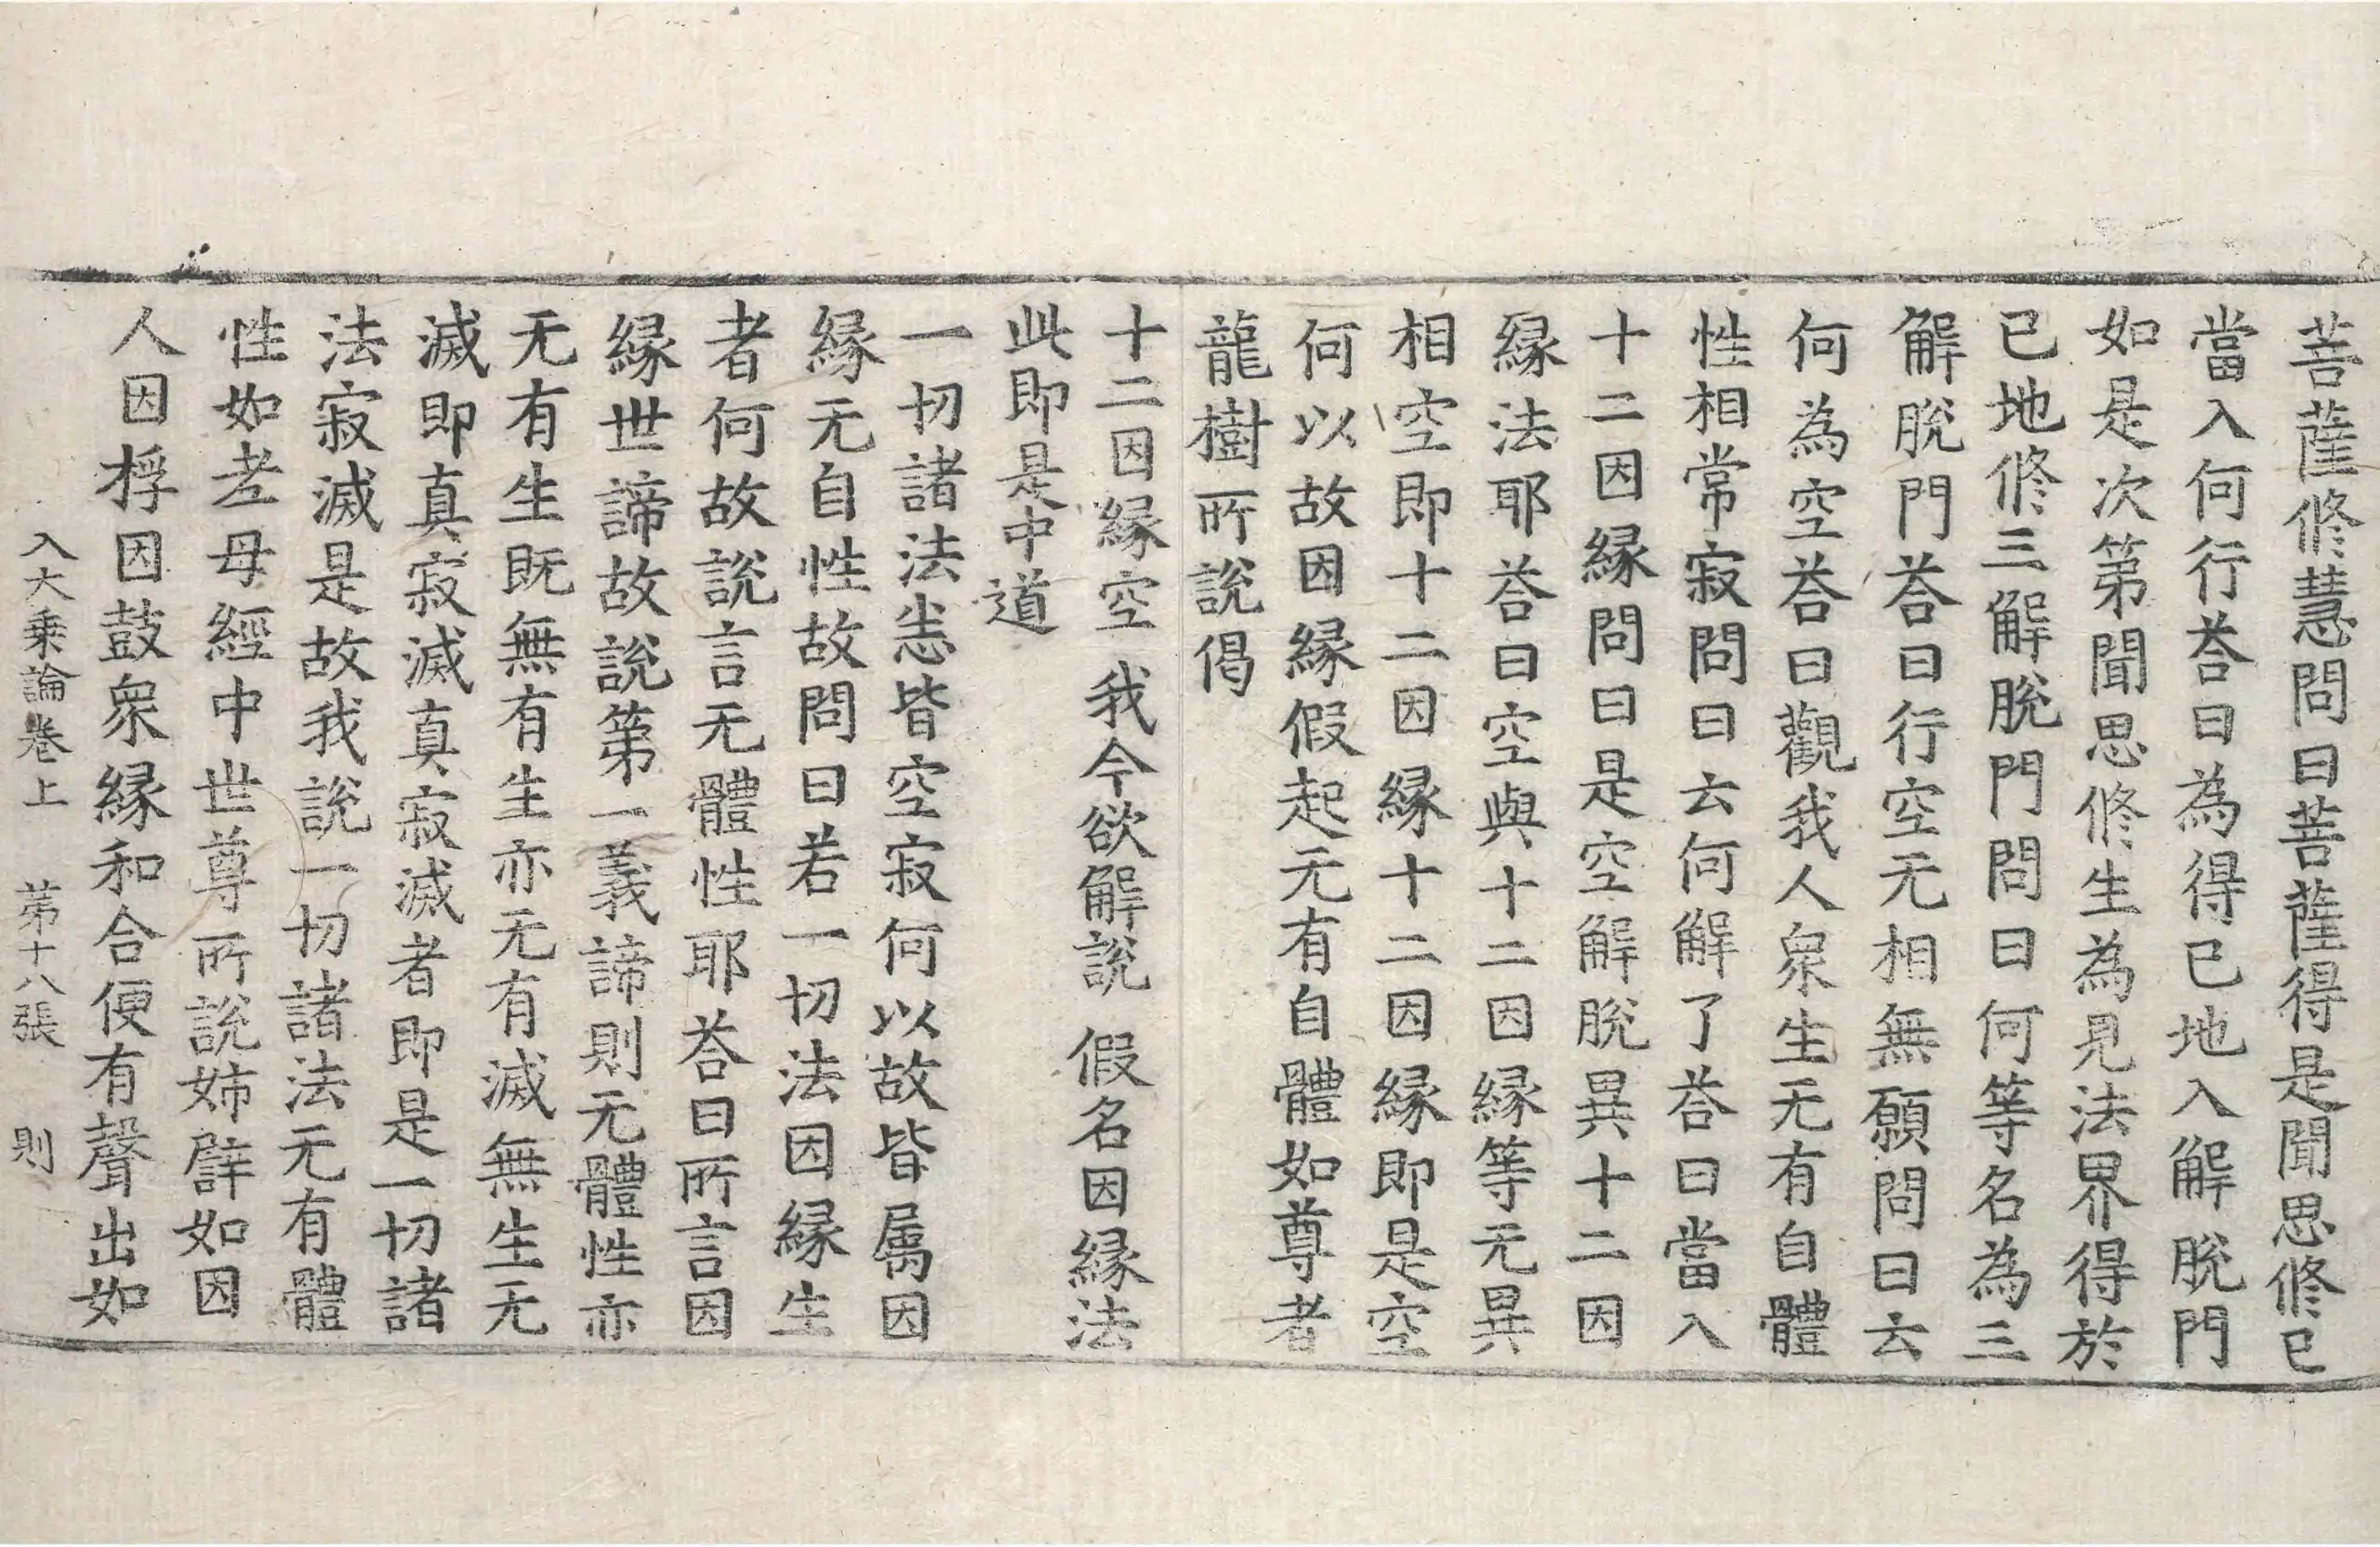 菩薩修慧問曰菩薩得是聞思修已
當入何行荅曰為得已地入解脫門
如是次第聞思修生為見法界得於
已地修三解脫門問曰何等名為三
解脫門荅曰行空无相無願問曰云
何為空荅曰觀我人衆生无有自體
性相常寂問曰云何解了荅曰當入
十二因縁問曰是空解脫異十二因
縁法耶荅曰空與十二因縁等无異
相空即十二因縁十二因縁即是空
何以故因縁假起无有自體如尊者
龍樹所說偈
十二因縁空　我今欲解説　假名因縁法
此即是中道
一切諸法悉皆空寂何以故皆屬因
縁无自性故問曰若一切法因縁生
者何故說言无體性耶荅曰所言因
縁世諦故說第一義諦則无體性亦
无有生既無有生亦无有滅無生无
滅即真寂滅真寂滅者即是一切諸
法寂滅是故我說一切諸法无有體
性如老母經中世尊所說姉譬如因
人因桴因鼓衆縁和合便有聲出如
入大乗論卷上　第十八張　則